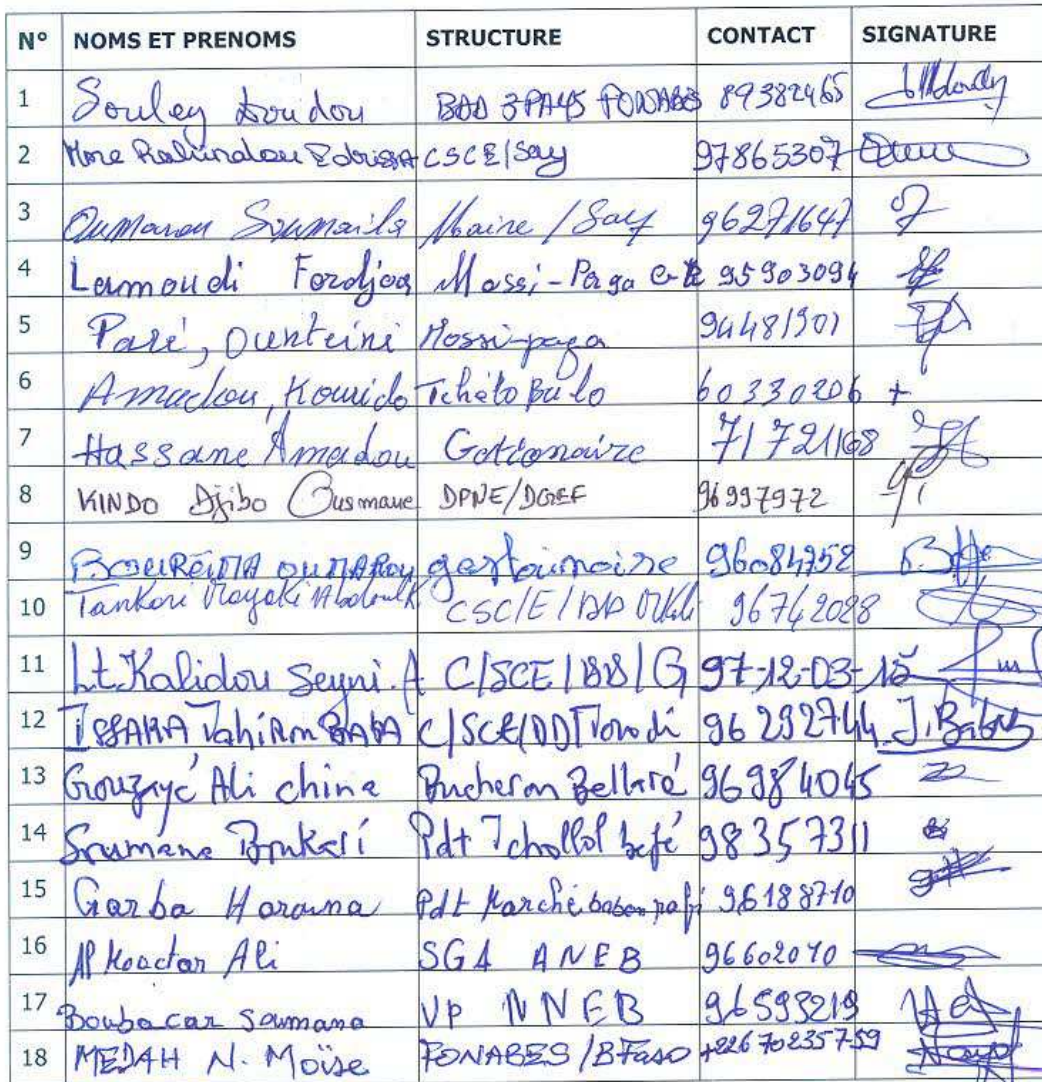 N° NOMS ET PRENOMS STRUCTURE CONTACT SIGNATURE
1 Souley Doudou BAD 3PAYS FONABES 89382465
2 CSCE/Say 97865307
3 Oumarou Soumaila Maire/Say 96271647
4 Lamoudi Fordjoa Mossi-Paga 95903094
5 Paré, Ounteini Mossi-paga 94481901
6 Amadou, Kourido Tchéto Bulo 60330206 +
7 Hassane Amadou Gestionaire 71721168
8 KINDO Djibo Ousmane DPNE/DGEF 96997972
9 BOUREIMA OUMAROU gestoinnoire 96084952
10 Tankari Mayaki Abdoulk CSC/E/DD 96742028
11 Lt. Kalidou Seyni. A C/SCE/DD/G 97-12-03-15
12 ISSAKA Tahirou BABA C/SCE/DD/Torodi 96292744 I.Baba
13 Gouzayé Ali china Bucheron Bellaré 96984045
14 Soumana Boukari Pdt Tchollol bafé 98357311
15 Garba Harouna Pdt Marché baban rafi 96188710
16 Al Moactar Ali SGA ANEB 96602070
17 Boubacar Soumana VP NNEB 96593219
18 MEDAH N. Moïse FONABES/BFaso +226 70235759